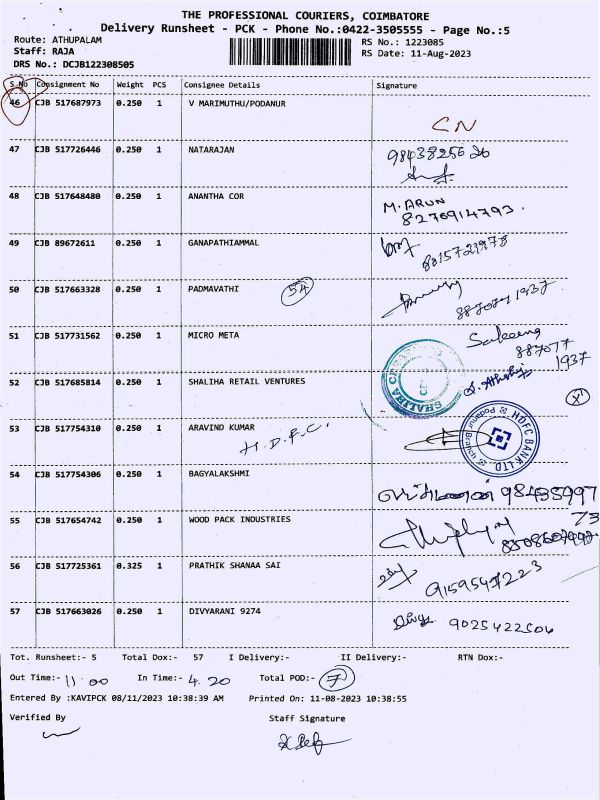 THE PROFESSIONAL COURIERS, COIMBATORE
Delivery Runsheet - PCK - Phone No.:0422-3505555 - Page No.:5
Route: ATHUPALAM RS No.: 1223085
Staff: RAJA RS Date: 11-Aug-2023
DRS No.: DCJB122308505
S.No Consignment No Weight PCS Consignee Details Signature
46 CJB 517687973 0.250 1 V MARIMUTHU/PODANUR
CN
47 CJB 517726446 0.250 1 NATARAJAN
48 CJB 517648480 0.250 1 ANANTHA COR
M. ARUN
8276914793.
49 CJB 89672611 0.250 1 GANAPATHIAMMAL
50 CJB 517663328 0.250 1 PADMAVATHI 54
51 CJB 517731562 0.250 1 MICRO META
887077
1937
52 CJB 517685814 0.250 1 SHALIHA RETAIL VENTURES
SHALIHA
53 CJB 517754310 0.250 1 ARAVIND KUMAR
H.D.F.C.
HDFC BANK LTD.
54 CJB 517754306 0.250 1 BAGYALAKSHMI
98435997
73
55 CJB 517654742 0.250 1 WOOD PACK INDUSTRIES
56 CJB 517725361 0.325 1 PRATHIK SHANAA SAI
9159547223
57 CJB 517663026 0.250 1 DIVYARANI 9274
9025422506
Tot. Runsheet:- 5 Total Dox:- 57 I Delivery:- II Delivery:- RTN Dox:-
Out Time:- 11.00 In Time:- 4.20 Total POD:- 7
Entered By :KAVIPCK 08/11/2023 10:38:39 AM Printed On: 11-08-2023 10:38:55
Verified By Staff Signature